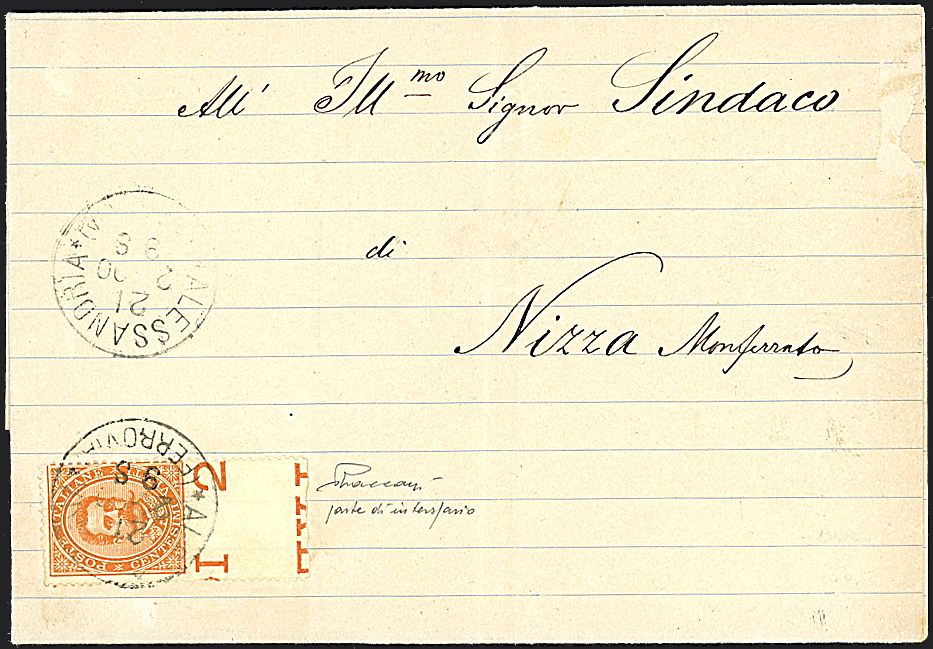 All' Ill.mo Signor Sindaco
di
Nizza Monferrato
ALESSANDRIA *
21
2 90
9 S
(FERROVIA) * AL
9 S
21
POSTE ITALIANE
CENTESIMI
2
I
parte di interspazio